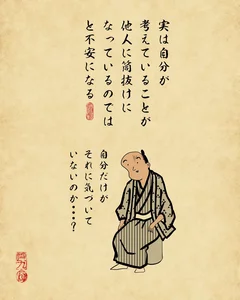 実は自分が
考えていることが
他人に筒抜けに
なっているのでは
と不安になる
自分だけが
それに気づいて
いないのか・・・？